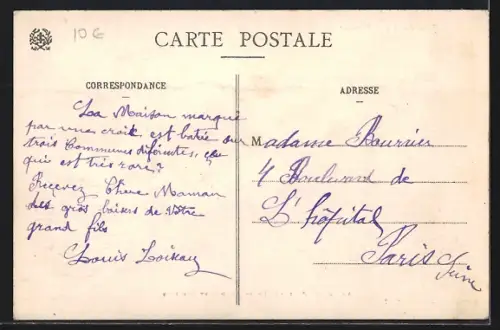 10 €
CARTE POSTALE
CORRESPONDANCE
La Maison marqué
par une croix est batie sur
trois Communes diférentes, ce
qui est très rare?
Recevez Chère Maman
des gros baisers de votre
grand fils
Louis Loison
ADRESSE
Madame Bourrier
4 Boulevard de
L'hôpital
Paris
Seine